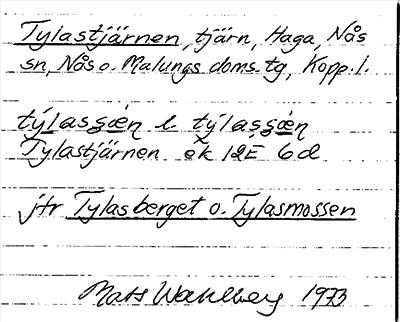 Tylastjärnen, tjärn, Haga, Nås
sn, Nås o. Malungs doms. tg, Kopp. l.
týlasșœ̀n l. týlasșœ̀n
Tylastjärnen ek 12E 6d
jfr Tylasberget o. Tylasmossen
Mats Wahlberg 1973